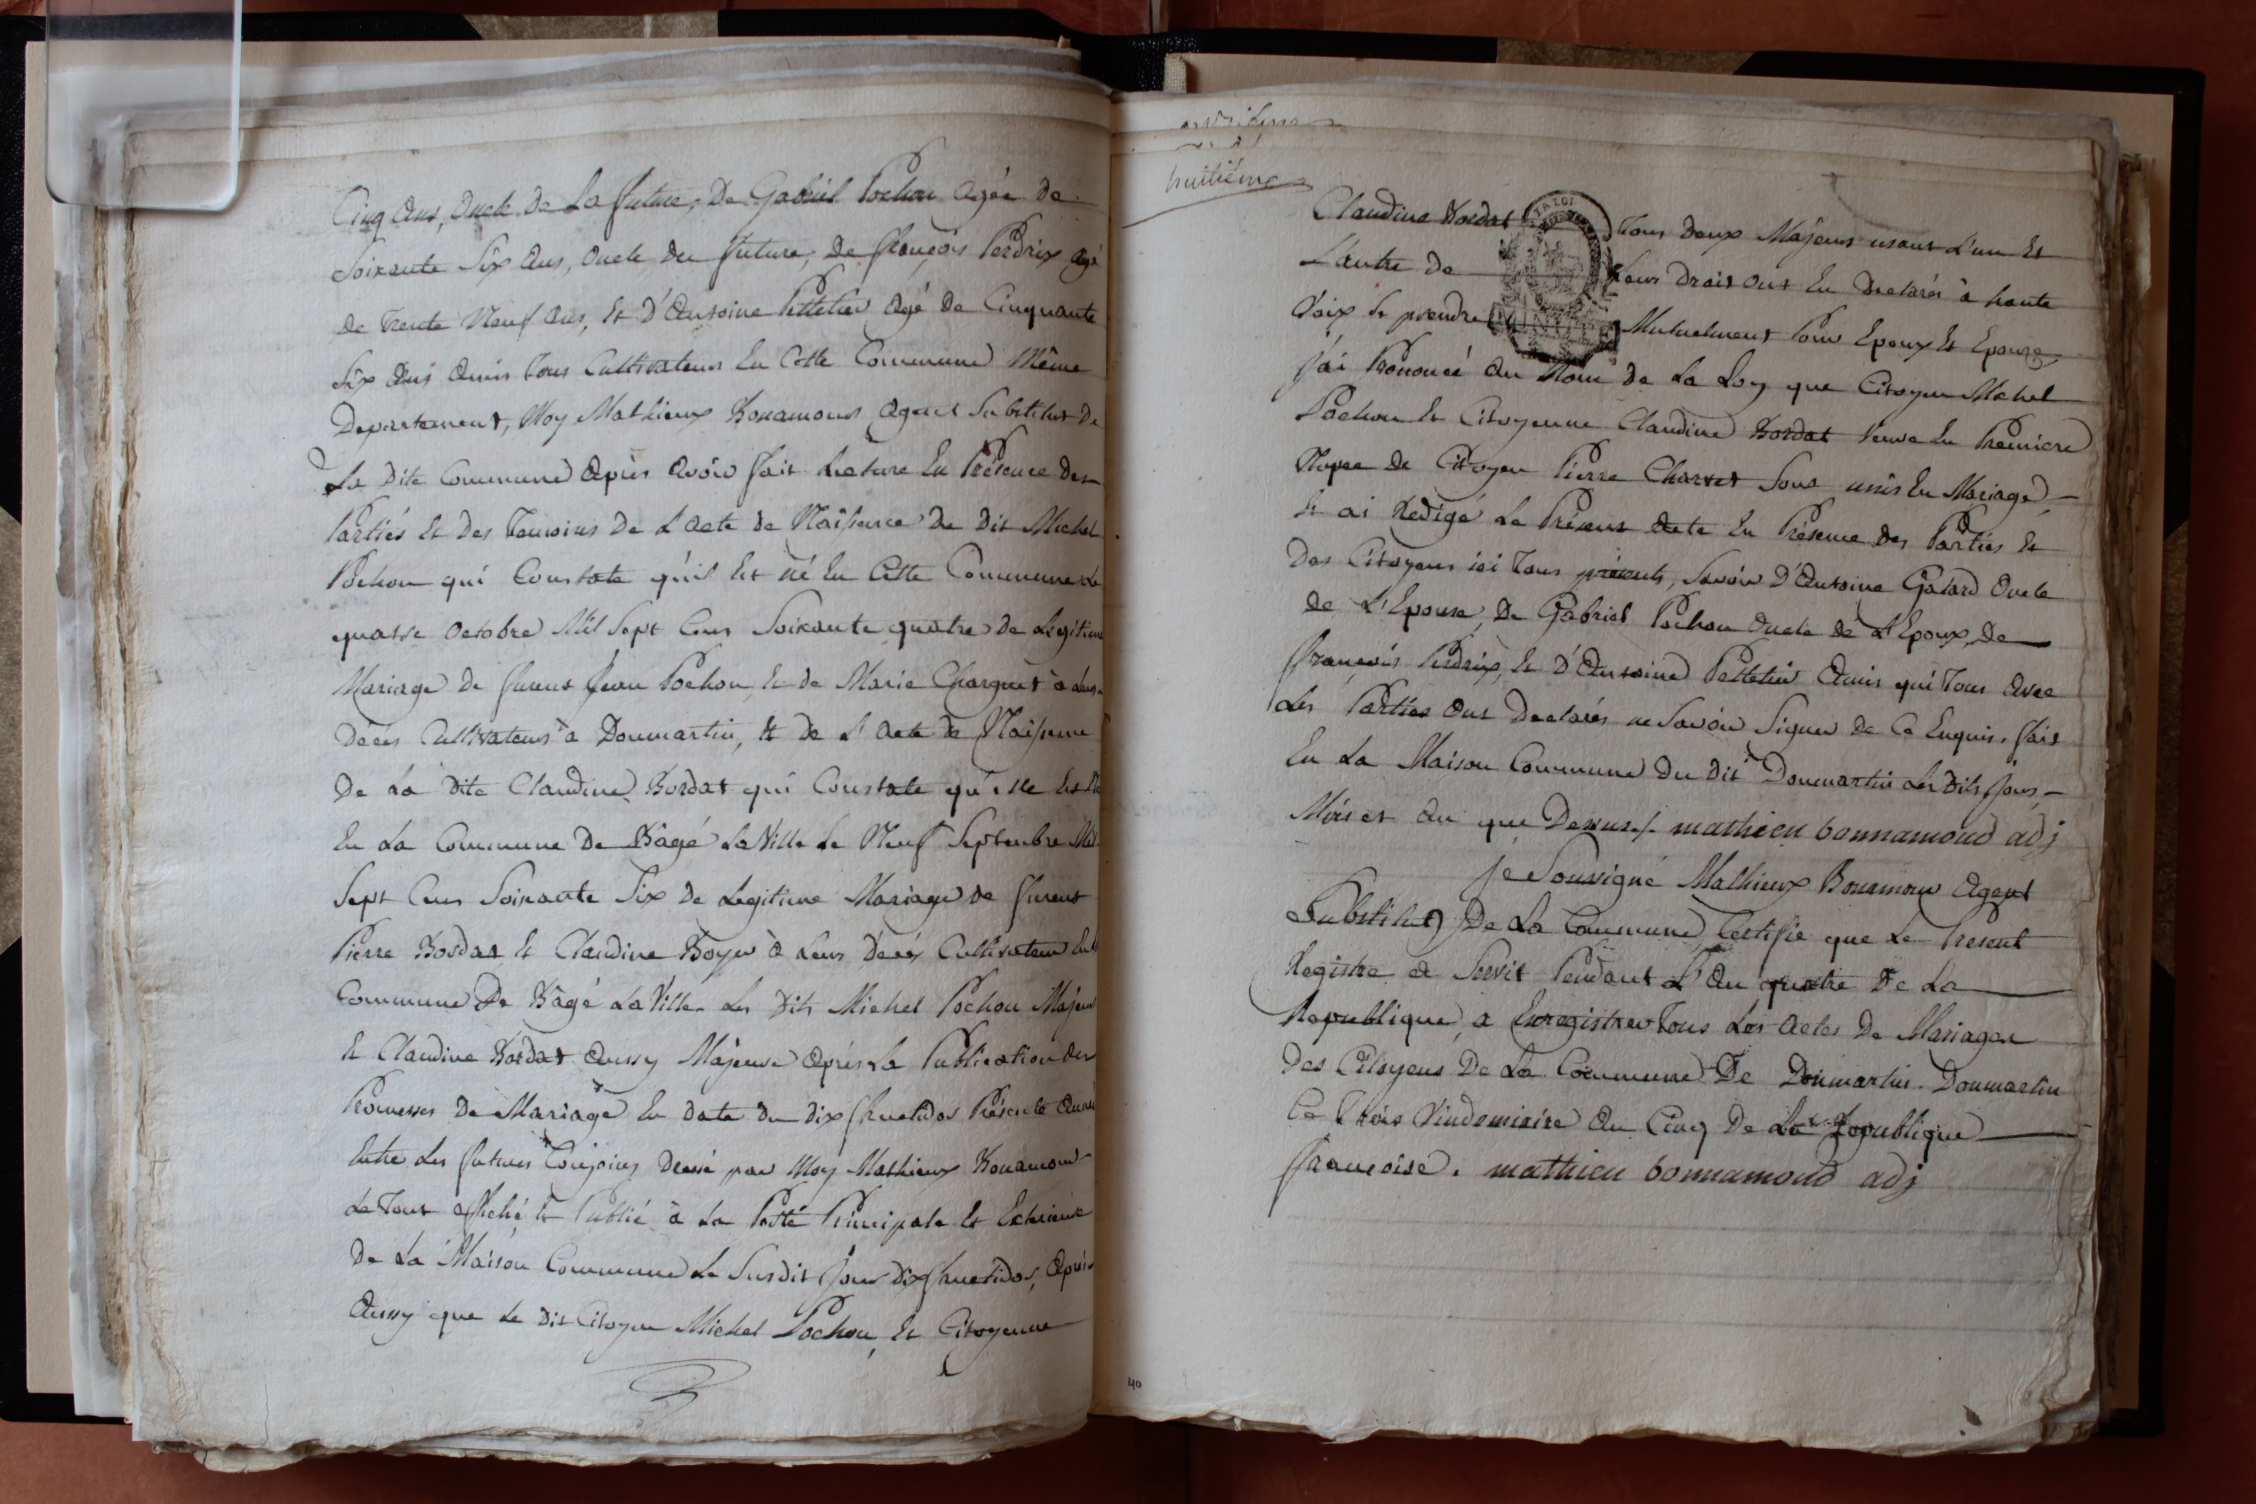 Cinq Ans, Oncle de La future, De Gabriel Pochon Agée de
Soixante Six Ans, Oncle du future, De françois Perdrix Agé
de Trente Neuf Ans, Et D'Antoine Pelletier Agé de Cinquante
Six Ans Amis Tous Cultivateurs En Cette Commune Même
Departement, Moy Mathieux Bonamour Agent Substitut De
La Dite Commune Apres Avoir fait Lecture En Présence Des
Partiés Et Des Temoins de L'acte de Naissance Du Dit Michel
Pochon qui Constate qu'il Est né En Cette Commune Le
quatre Octobre Mil Sept Cens Soixante quatre de Legitime
Mariage de furent Jean Pochon Et de Marie Charguet à Leurs
Décès Cultivateurs à Dommartin, Et de L'Acte de Naissance
De La Dite Claudine Bordat qui Constate qu'elle Est Né
En La Commune De Bâgé La Ville Le Neuf Septembre Mil
Sept Cens Soixante Six de Legitime Mariage de furent
Pierre Bordat Et Claudine Boyer à Leurs Décés Cultivateurs En
Commune De Bâgé La Ville Les Dits Michel Pochon Majeur
Et Claudine Bordat Aussy Majeure Aprés La Publication Des
Promesses De Mariage En date du dix fructidor Présente Année
Entre Les futures Conjoins Dressé par Moy Mathieux Bonamour
Le Tout Affiché Et Publié à La Porte Principale Et Exterieure
De La Maison Commune Le Susdit Jour Dix fructidor, Aprés
Aussy que Le Dit Citoyen Michel Pochon, Et Citoyenne
huitiéme
Claudine Bordat Tous Deux Majeurs usant L'un Et
L'autre De Leurs Droits Ont Eu Declarés à haute
Voix Se prendre Mutuelment Pour Epoux Et Epouse
J'ai Prononcé Au Nom de La Loy que Citoyen Michel
Pochon Et Citoyenne Claudine Bordat Veuve En Premiere
Nopce de Citoyen Pierre Charvet Sont unis En Mariage,
Et ai Redigé Le Présent Acte En Présence Des Parties Et
Des Citoyens ici Tous présents, Savoir D'Antoine Galard Oncle
de L'Epouse, De Gabriel Pochon Oncle de L'Epoux, De
françois Perdrix, Et D'Antoine Pelletier Amis qui Tous Avec
Les Parties Ont Declarés ne Savoir Signer de Ce Enquis. fait
En La Maison Commune Du Dit Dommartin Les Dits Jour,
Mois et An que Dessus./. mathieu bonnamoud adj
Je Soussigné Mathieux Bonamour Agent
Substitut De La Commune Certifie que Le Present
Registre a Servit Pendant L'An quatre De La
Republique, a Enregistrer Tous Les Actes De Mariages
Des Citoyens De La Commune De Dommartin. Dommartin
Ce Trois Vindemiaire An Cinq De La Republique
françoise. mathieu bonnamoud adj
40